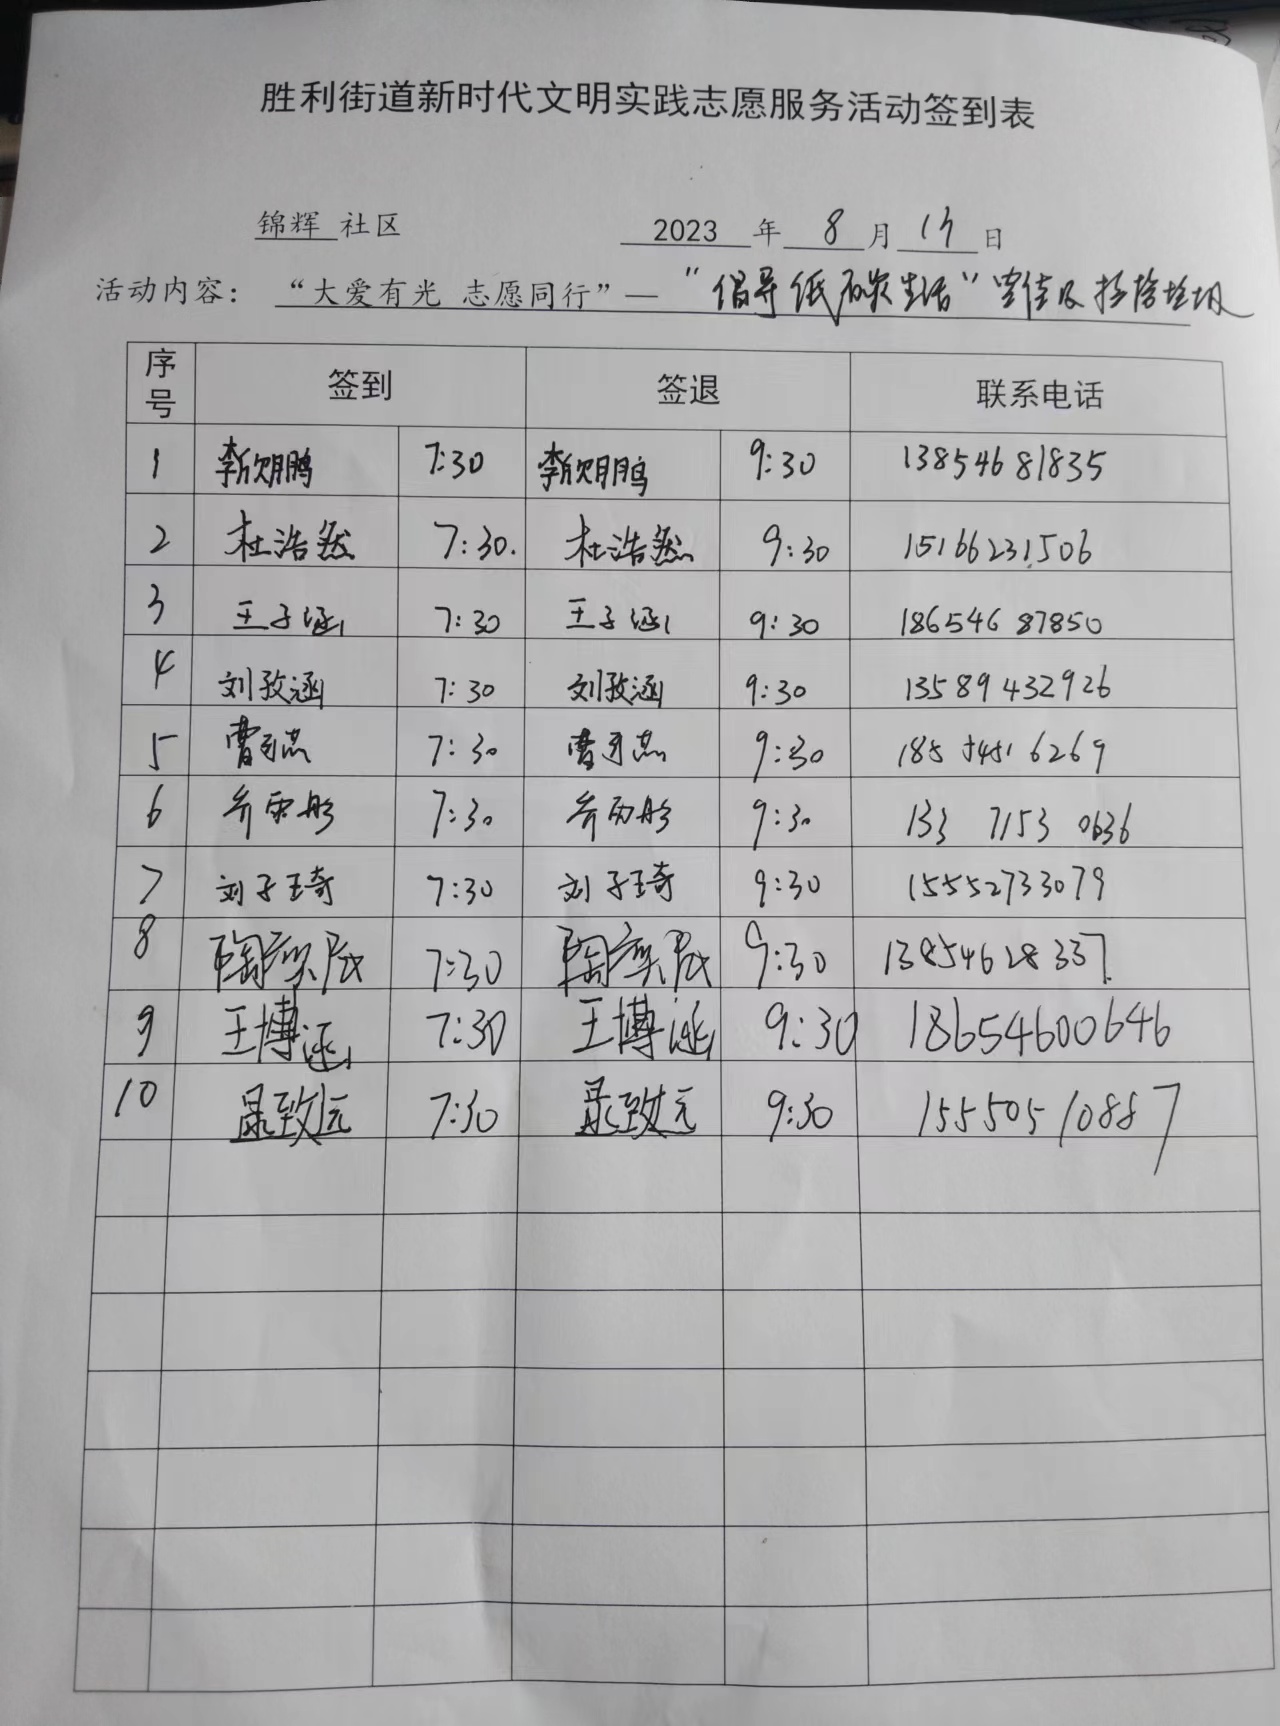 胜利街道新时代文明实践志愿服务活动签到表
锦辉 社区 2023 年 8 月 日
活动内容： “大爱有光 志愿同行”— “倡导低碳生活”宣传及捡拾垃圾
序号 签到 签退 联系电话
1 李欣鹏 7:30 李欣鹏 9:30 13854681835
2 杜浩然 7:30. 杜浩然 9:30 15166231506
3 王子涵 7:30 王子涵 9:30 18654687850
4 刘孜涵 7:30 刘孜涵 9:30 13589432926
5 7:30 9:30 18554516269
6 齐雨彤 7:30 齐雨彤 9:30 133 7153 0636
7 刘子琦 7:30 刘子琦 9:30 15552733079
8 7:30 9:30 13854628337
9 王博涵 7:30 王博涵 9:30 18654600646
10 致远 7:30 致远 9:30 15550510887